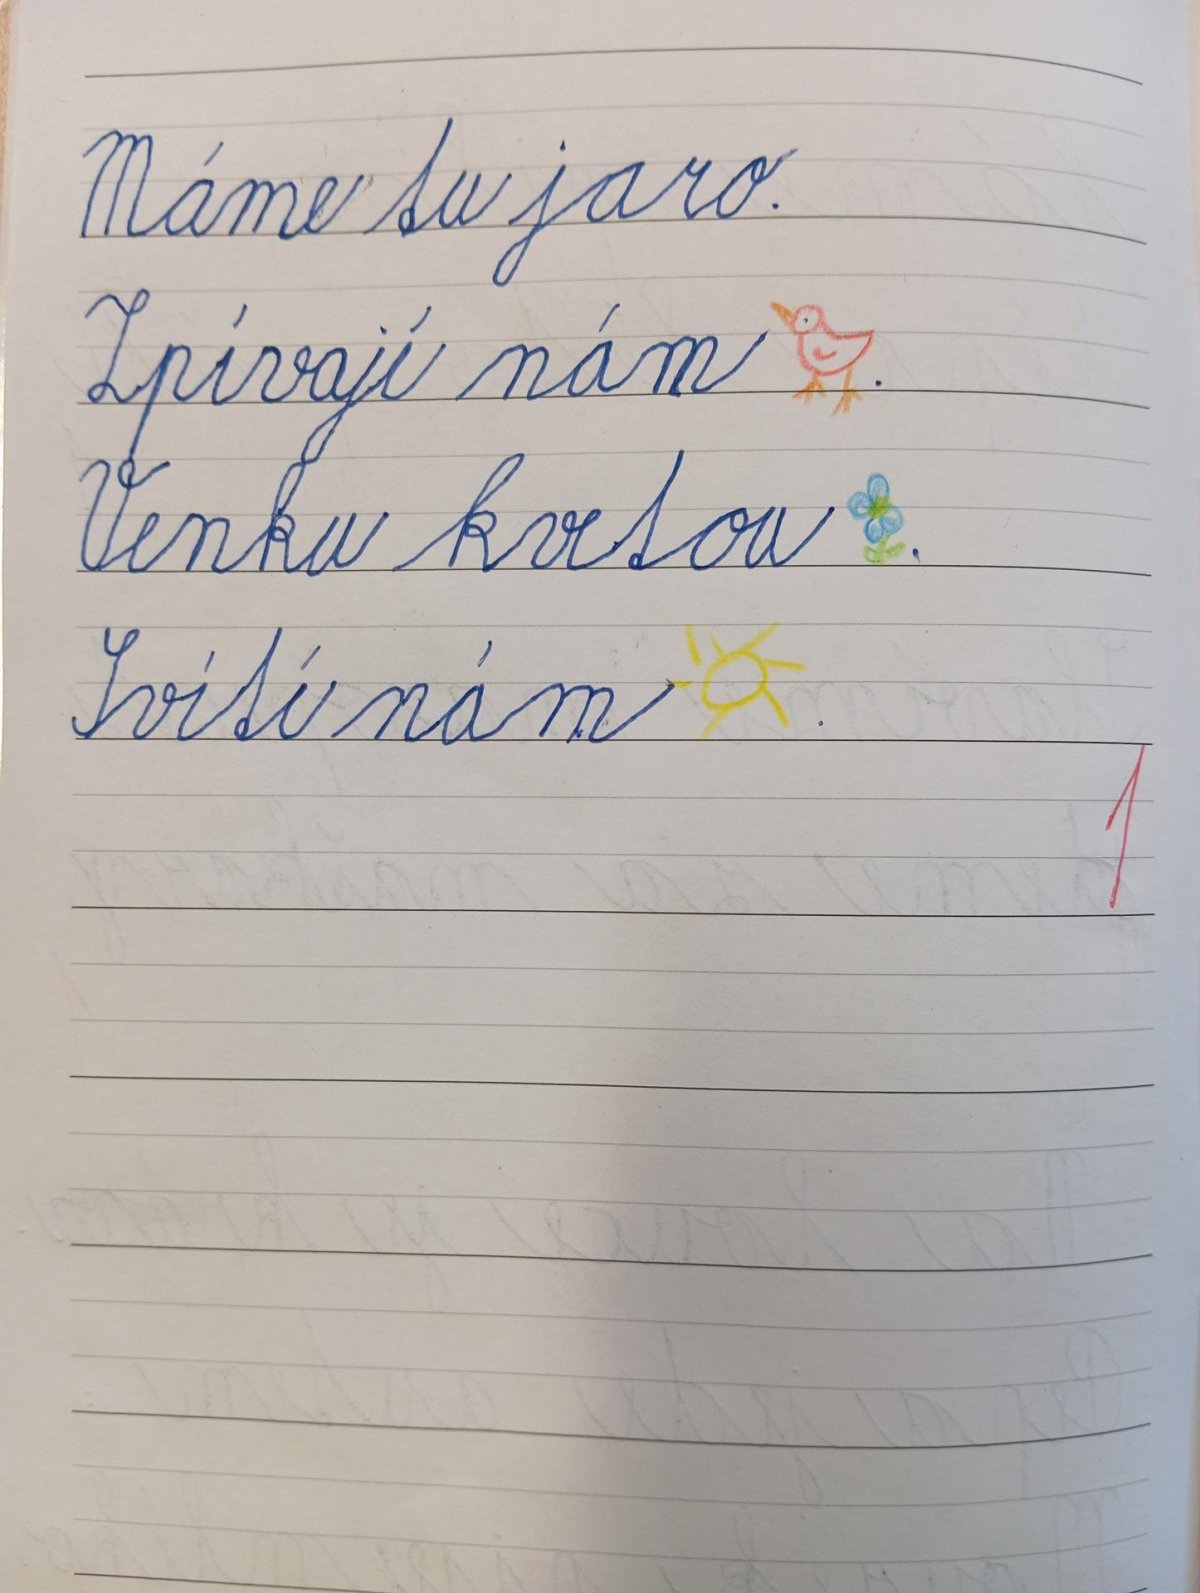 Máme tu jaro.
Zpívají nám .
Venku kvetou .
Svítí nám .
1